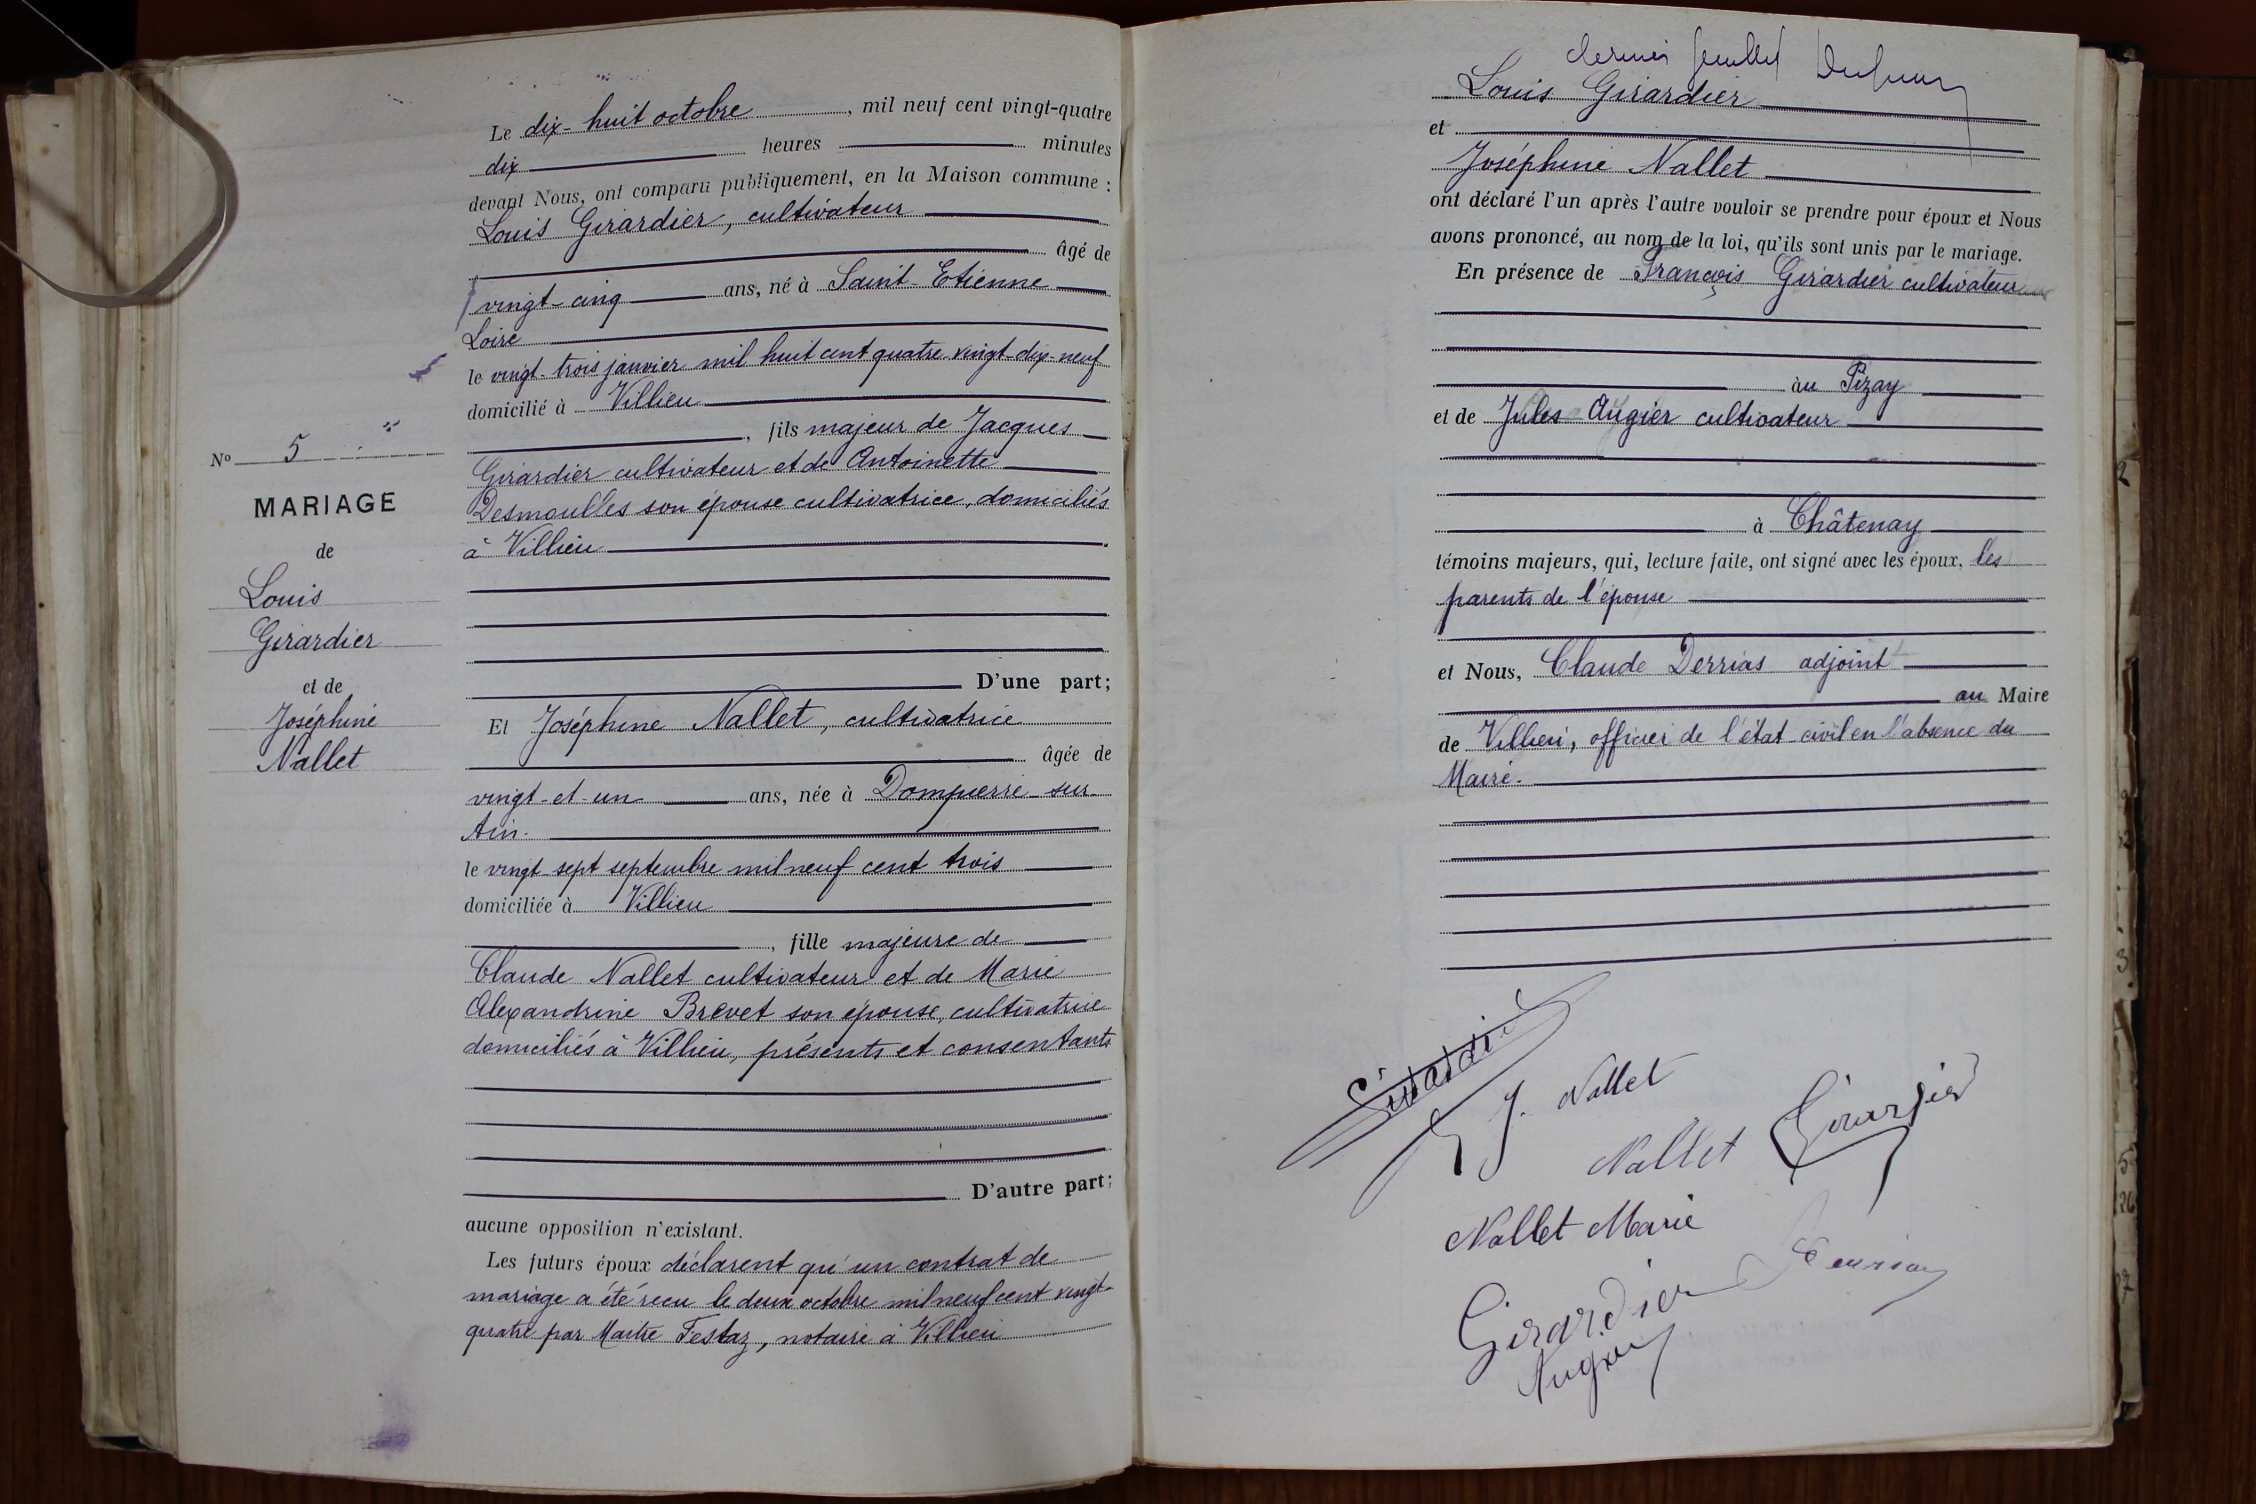 Le dix-huit octobre, mil neuf cent vingt-quatre
dix heures minutes
devant Nous, ont comparu publiquement, en la Maison commune :
Louis Girardier, cultivateur
âgé de
vingt-cinq ans, né à Saint-Etienne
Loire
le vingt-trois janvier mil huit cent quatre-vingt-dix-neuf
domicilié à Villieu
, fils majeur de Jacques
Girardier cultivateur et de Antoinette
Desmoulles son épouse cultivatrice, domiciliés
à Villieu
D'une part;
Et Joséphine Nallet, cultivatrice
âgée de
vingt-et-un ans, née à Dompierre-sur-
Ain.
le vingt-sept septembre mil neuf cent trois
domiciliée à Villieu
, fille majeure de
Claude Nallet cultivateur et de Marie
Alexandrine Brevet son épouse, cultivatrice
domiciliés à Villieu, présents et consentants
D'autre part;
aucune opposition n'existant.
Les futurs époux déclarent qu'un contrat de
mariage a été reçu le deux octobre mil neuf cent vingt-
quatre par Maître Festaz, notaire à Villieu
No 5
MARIAGE
de
Louis
Girardier
et de
Joséphine
Nallet
dernier feuillet
Louis Girardier
et
Joséphine Nallet
ont déclaré l'un après l'autre vouloir se prendre pour époux et Nous
avons prononcé, au nom de la loi, qu'ils sont unis par le mariage.
En présence de François Girardier cultivateur
àu Pizay
et de Jules Augier cultivateur
à Châtenay
témoins majeurs, qui, lecture faite, ont signé avec les époux, les
parents de l'épouse
et Nous, Claude Derrias adjoint
au Maire
de Villieu, officier de l'état-civil en l'absence du
Maire.
Girardier
J. Nallet
Nallet Girardier
Nallet Marie
Girardier
Augier